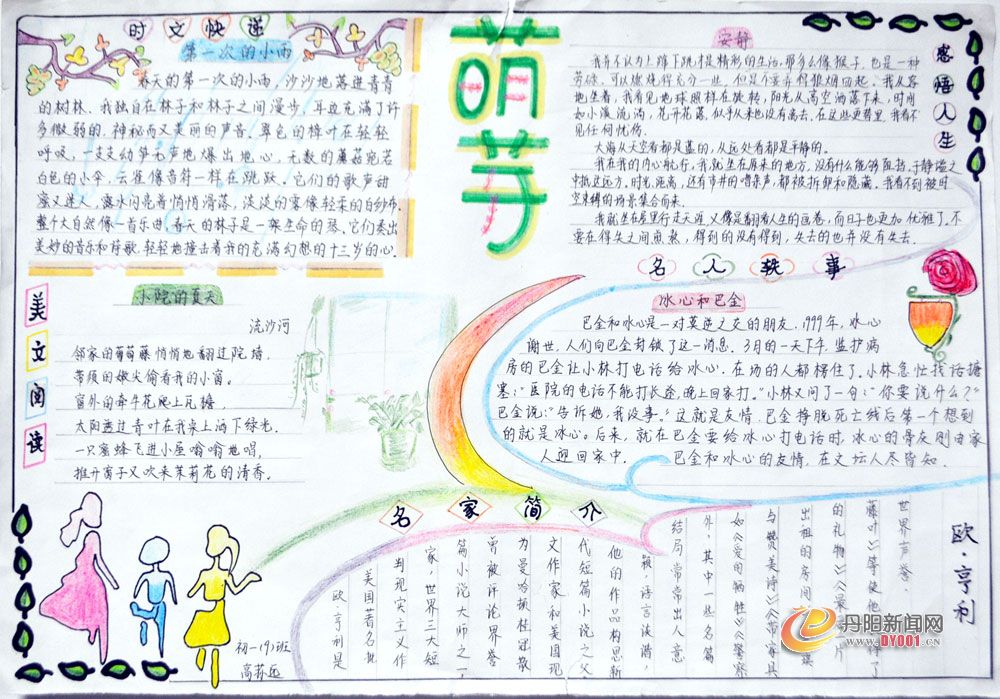 时文快递
第一次的小雨
春天的第一次的小雨，沙沙地落进青青
的树林。我独自在林子和林子之间漫步，耳边充满了许
多微弱的，神秘而又美丽的声音。翠色的樟叶在轻轻
呼吸，一支支幼笋无声地爆出地心，无数的蘑菇宛若
白色的小伞，云雀像音符一样在跳跃。它们的歌声甜
蜜又迷人，露水闪亮着悄悄滑落，淡淡的雾像轻柔的白纱巾，
整个大自然像一首乐曲，春天的林子是一架生命的琴。它们奏出
美妙的音乐和诗歌，轻轻地撞击着我的充满幻想的十三岁的心。
萌芽
安静
我并不认为上蹿下跳才是精彩的生活，那多么像猴子。也是一种
可以燃烧得充分一些，但是不要弄得狼烟四起。我从容
地坐着，我看见地球照样在旋转，阳光从高空洒落下来，时间
如小溪流淌，花开花落，似乎从来也没有离去，在这些更替里，我看不
见任何忧伤。
大海从天空看都是蓝的，从远处看都是平静的。
我在我的内心航行，我就坐在原来的地方，没有什么能够阻挡，于静谧之
中抵达远方。时光，距离，还有市井的嘈杂声，都被拆卸和隐藏。我看不到被时
空束缚的场景集合而来。
我就坐在屋里行走天涯，又像是翻看人生的画卷，而日子也更加优雅了。不
要在得失之间煎熬，得到的没有得到，失去的也并没有失去。
感悟人生
美文阅读
小院的夏天
流沙河
邻家的葡萄藤悄悄地翻过院墙，
带须的嫩尖偷看我的小窗。
窗外的牵牛花爬上瓦檐，
太阳透过青叶在我桌上洒下绿光。
一只蜜蜂飞进小屋嗡嗡地唱，
推开窗子又吹来茉莉花的清香。
名人轶事
冰心和巴金
巴金和冰心是一对莫逆之交的朋友，1999年，冰心
谢世，人们向巴金封锁了这一消息。3月的一天下午，监护病
房的巴金让小林打电话给冰心，在场的人都楞住了。小林急忙找话搪
塞：“医院的电话不能打长途，晚上回家打。”小林又问了一句：“你要说什么？”
巴金说：“告诉她，我没事。”这就是友情，巴金挣脱死亡线后第一个想到
的就是冰心。后来，就在巴金要给冰心打电话时，冰心的骨灰刚由家
人迎回家中。 巴金和冰心的友情，在文坛人尽皆知。
名家简介
欧·亨利
欧·亨利是
美国著名批
判现实主义作
家，世界三大短
篇小说大师之一，
曾被评论界誉
为曼哈顿桂冠散
文作家和美国现
代短篇小说之父，
他的作品构思新
颖，语言诙谐，
结局常常出人意
外，其中一些名篇
如《爱的牺牲》《警察
与赞美诗》《带家具
出租的房间》
的礼物》《最
藤叶》等使他
世界声誉。
初一(9)班
高苏远
丹阳新闻网
WWW.DY001.CN